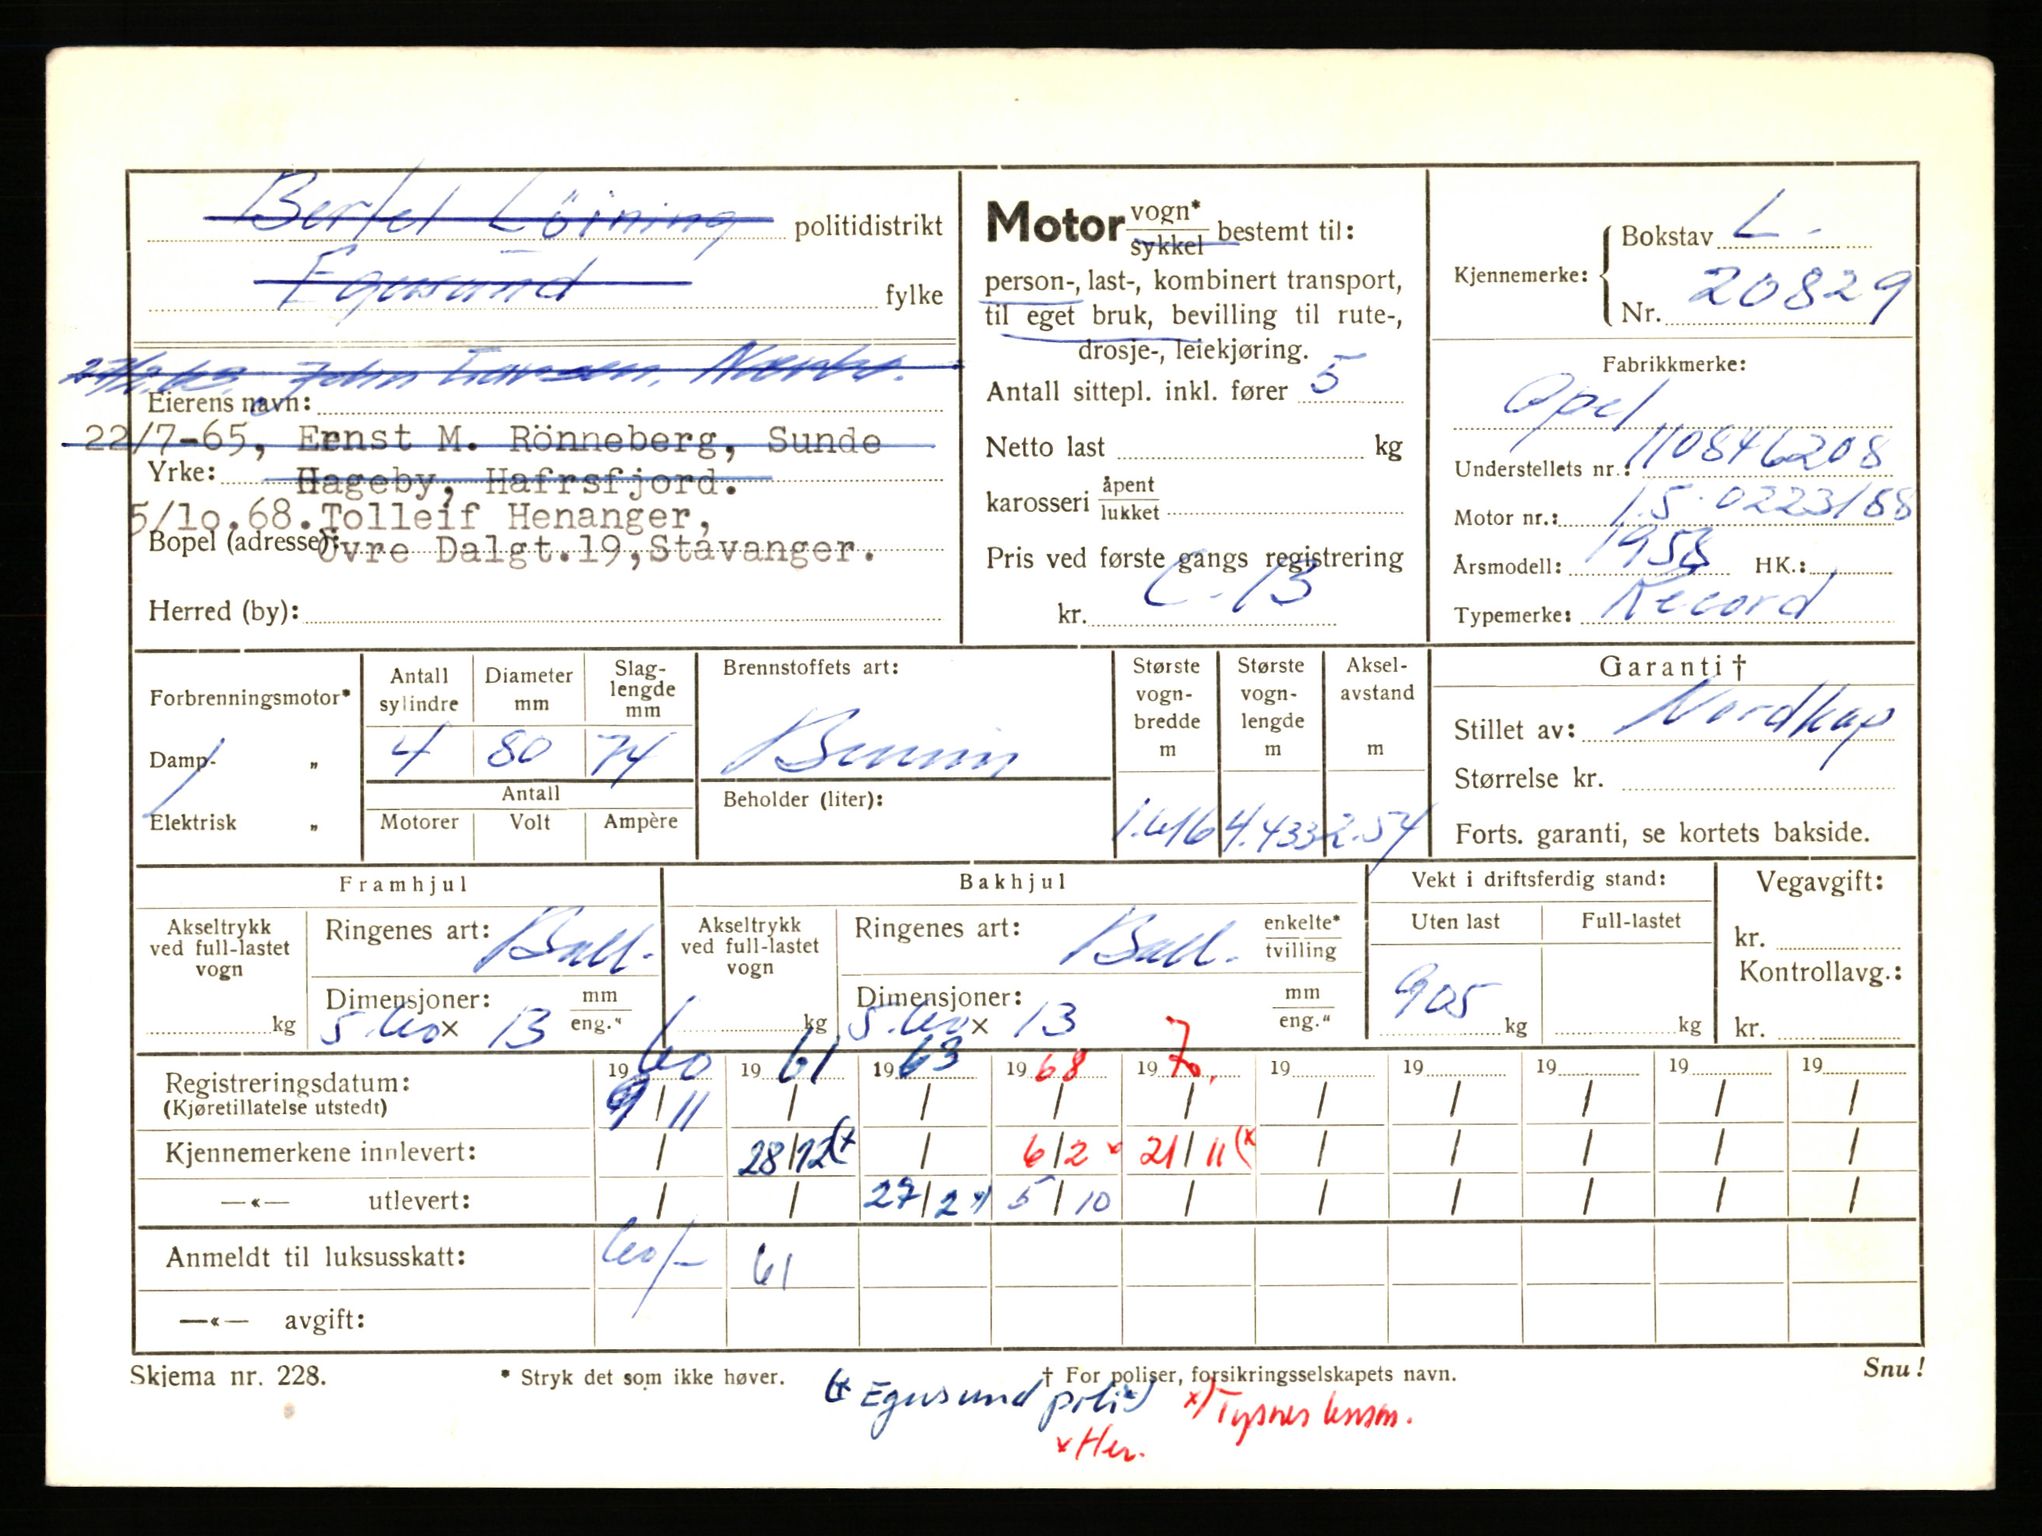 Bertel Löining politidistrikt
Egersund fylke
John
Eierens navn:
22/7-65, Ernst M. Rönneberg, Sunde
Yrke: Hageby, Hafrsfjord.
5/10.68. Tolleif Henanger,
Bopel (adresse): Øvre Dalgt.19, Stavanger.
Herred (by):
Motor vogn* sykkel bestemt til:
person-, last-, kombinert transport,
til eget bruk, bevilling til rute-,
drosje-, leiekjøring.
Antall sittepl. inkl. fører 5
Netto last kg
karosseri åpent lukket
Pris ved første gangs registrering
kr. C-13
Kjennemerke: Bokstav L.
Nr. 20829
Fabrikkmerke:
Opel
Understellets nr.: 110846208
Motor nr.: 1.5-0223188
Årsmodell: 1958 HK.:
Typemerke: Record
Forbrenningsmotor*
Damp- „
Elektrisk „
Antall sylindre Diameter mm Slag-lengde mm
4 80 74
Antall
Motorer Volt Ampère
Brennstoffets art:
Bensin
Beholder (liter):
Største vogn-bredde m Største vogn-lengde m Aksel-avstand m
1.616 4.433 2.54
Garanti †
Stillet av: Nordkap
Størrelse kr.
Forts. garanti, se kortets bakside.
Framhjul
Akseltrykk ved full-lastet vogn kg
Ringenes art: Ball.
Dimensjoner: 5.60 x 13 mm eng."
Bakhjul
Akseltrykk ved full-lastet vogn kg
Ringenes art: Ball. enkelte* tvilling
Dimensjoner: 5.60 x 13 mm eng."
Vekt i driftsferdig stand:
Uten last Full-lastet
905 kg kg
Vegavgift:
kr.
Kontrollavg.:
kr.
Registreringsdatum: 1960 1961 1963 1968 1970. 19 19 19 19 19
(Kjøretillatelse utstedt) 9/11 / / / / / / / / /
Kjennemerkene innlevert: / 28/12(x / 6/2 x 21/11(x / / / / /
—«— utlevert: / / 27/2 x) 5/10 / / / / / /
Anmeldt til luksusskatt: 60/- 61
—«— avgift:
Skjema nr. 228. * Stryk det som ikke høver. † For poliser, forsikringsselskapets navn. Snu!
(x Egersund politi x) Tysnes lensm.
x Her.